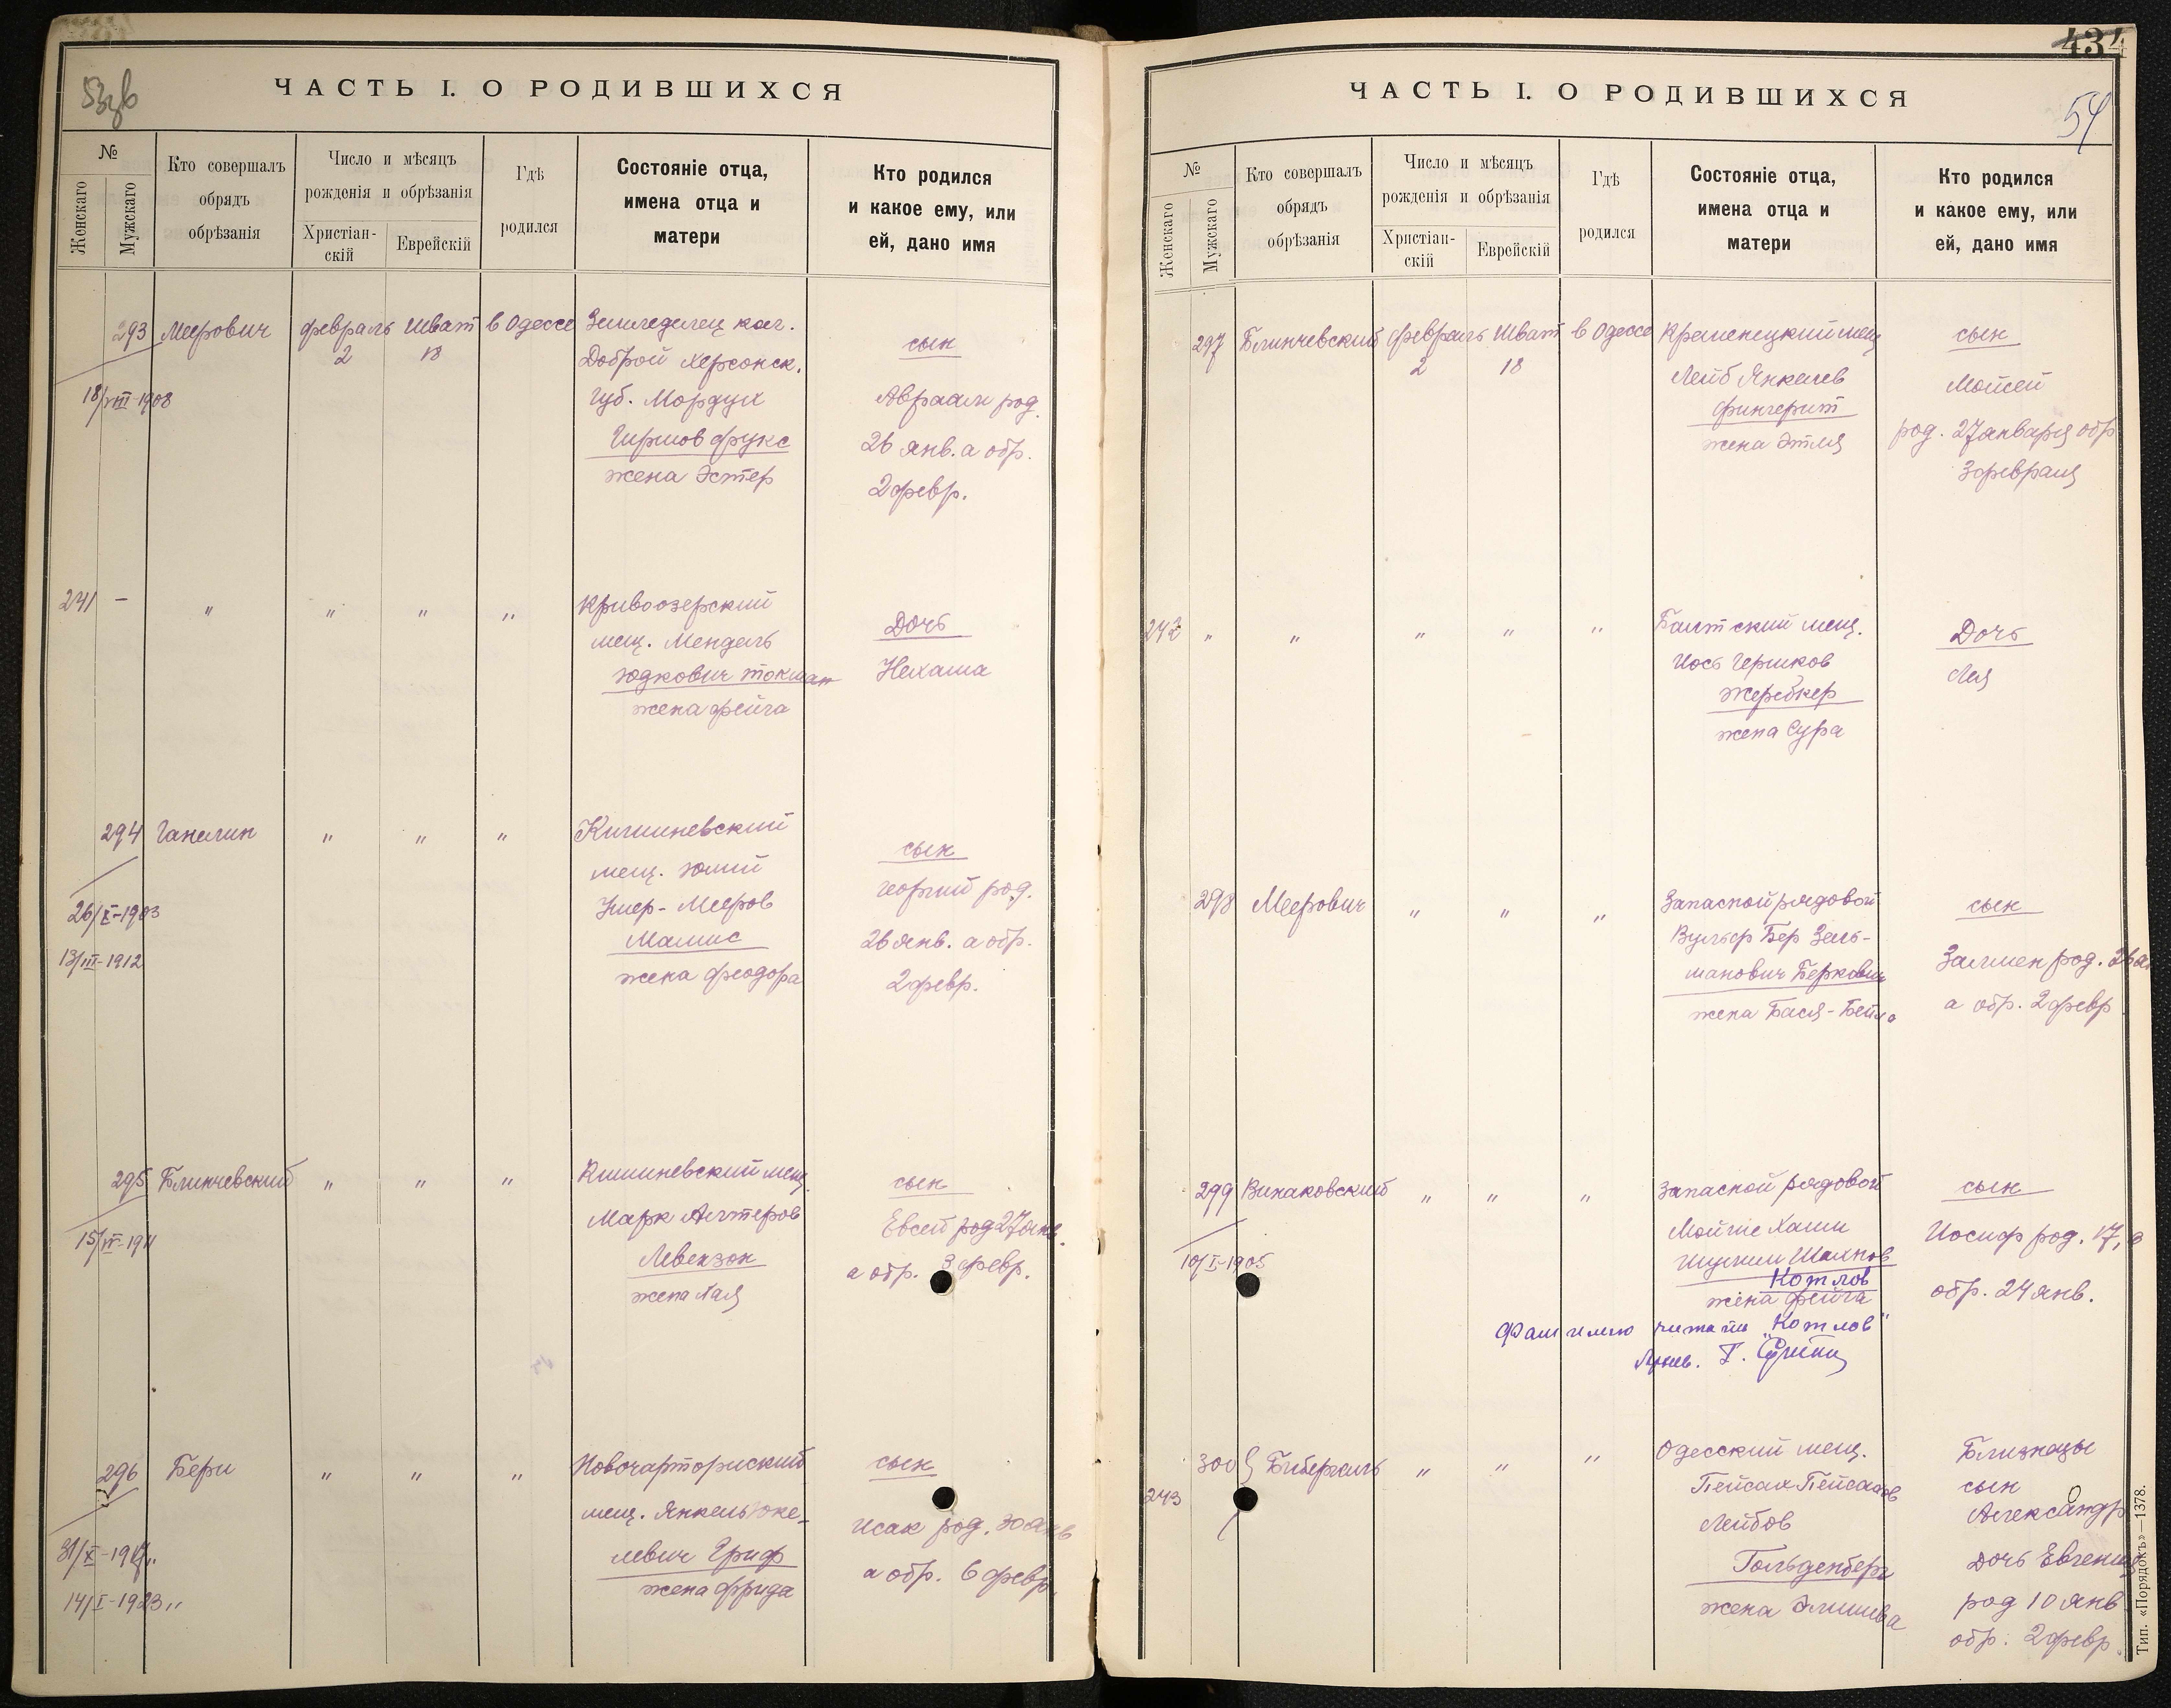 53об
ЧАСТЬ I. О РОДИВШИХСЯ
№
Женскаго
Мужскаго
Кто совершалъ
обрядъ
обрѣзанія
Число и мѣсяцъ
рожденія и обрѣзанія
Христіан-
скій
Еврейскій
Гдѣ
родился
Состояніе отца,
имена отца и
матери
Кто родился
и какое ему, или
ей, дано имя
293 Меерович февраль 2 Шват 18 в Одессе
18/VIII-1908
Земледелец кол.
Доброй Херсонск.
губ. Мордух
Гиршов Фукс
жена Эстер
сын
Авраам род.
26 янв. а обр.
2 февр.
241 - " " " "
Кривоозерский
мещ. Мендель
Юдкович Токман
жена Фейга
Дочь
Нехама
294 Ганелин " " "
26/X-1903
13/III-1912
Кишиневский
мещ. Юлий
Хиер-Мееров
Мамис
жена Феодора
сын
Георгий род.
26 янв. а обр.
2 февр.
295 Блинчевский " " "
15/IV-1911
Кишиневский мещ.
Марк Ахтеров
Левензон
жена Лая
сын
Евсей род 27 янв.
а обр. 3 февр.
296 Бери " " "
31/X-1917"
14/I-1923"
Новочарторийский
мещ. Янкель Юке-
левич Гриф
жена Фрида
сын
Исак род. 30 янв
а обр. 6 февр.
434
54
ЧАСТЬ I. О РОДИВШИХСЯ
№
Женскаго
Мужскаго
Кто совершалъ
обрядъ
обрѣзанія
Число и мѣсяцъ
рожденія и обрѣзанія
Христіан-
скій
Еврейскій
Гдѣ
родился
Состояніе отца,
имена отца и
матери
Кто родился
и какое ему, или
ей, дано имя
297 Блинчевский февраль 2 Шват 18 в Одессе
Кременецкий мещ
Лейб Янкелев
Фингерит
жена Этля
сын
Мойсей
род. 27 января обр
3 февраля
242 " " " " "
Балтский мещ.
Иось Гершков
Жеребкер
жена Сура
Дочь
Лея
298 Меерович " " "
Запасной рядовой
Вульф Бер Зель-
манович Беркович
жена Бася-Бейла
сын
Залмен род. 26 я
а обр. 2 февр
299 Винаковский " " "
10/I-1905
Запасной рядовой
Мойше Хаим
Шулим Шахнов
Котлов
жена Фейга
сын
Иосиф род. 17, а
обр. 24 янв.
Фамилию читать "Котлов"
Архив.
300 Бибергаль " " "
243
Одесский мещ.
Пейсах Пейсахов
Лейбов
Гольденберг
жена Элишева
Близнецы
сын
Александр
Дочь Евгения
род 10 янв
обр. 2 февр.
Тип. «Порядокъ»—1378.